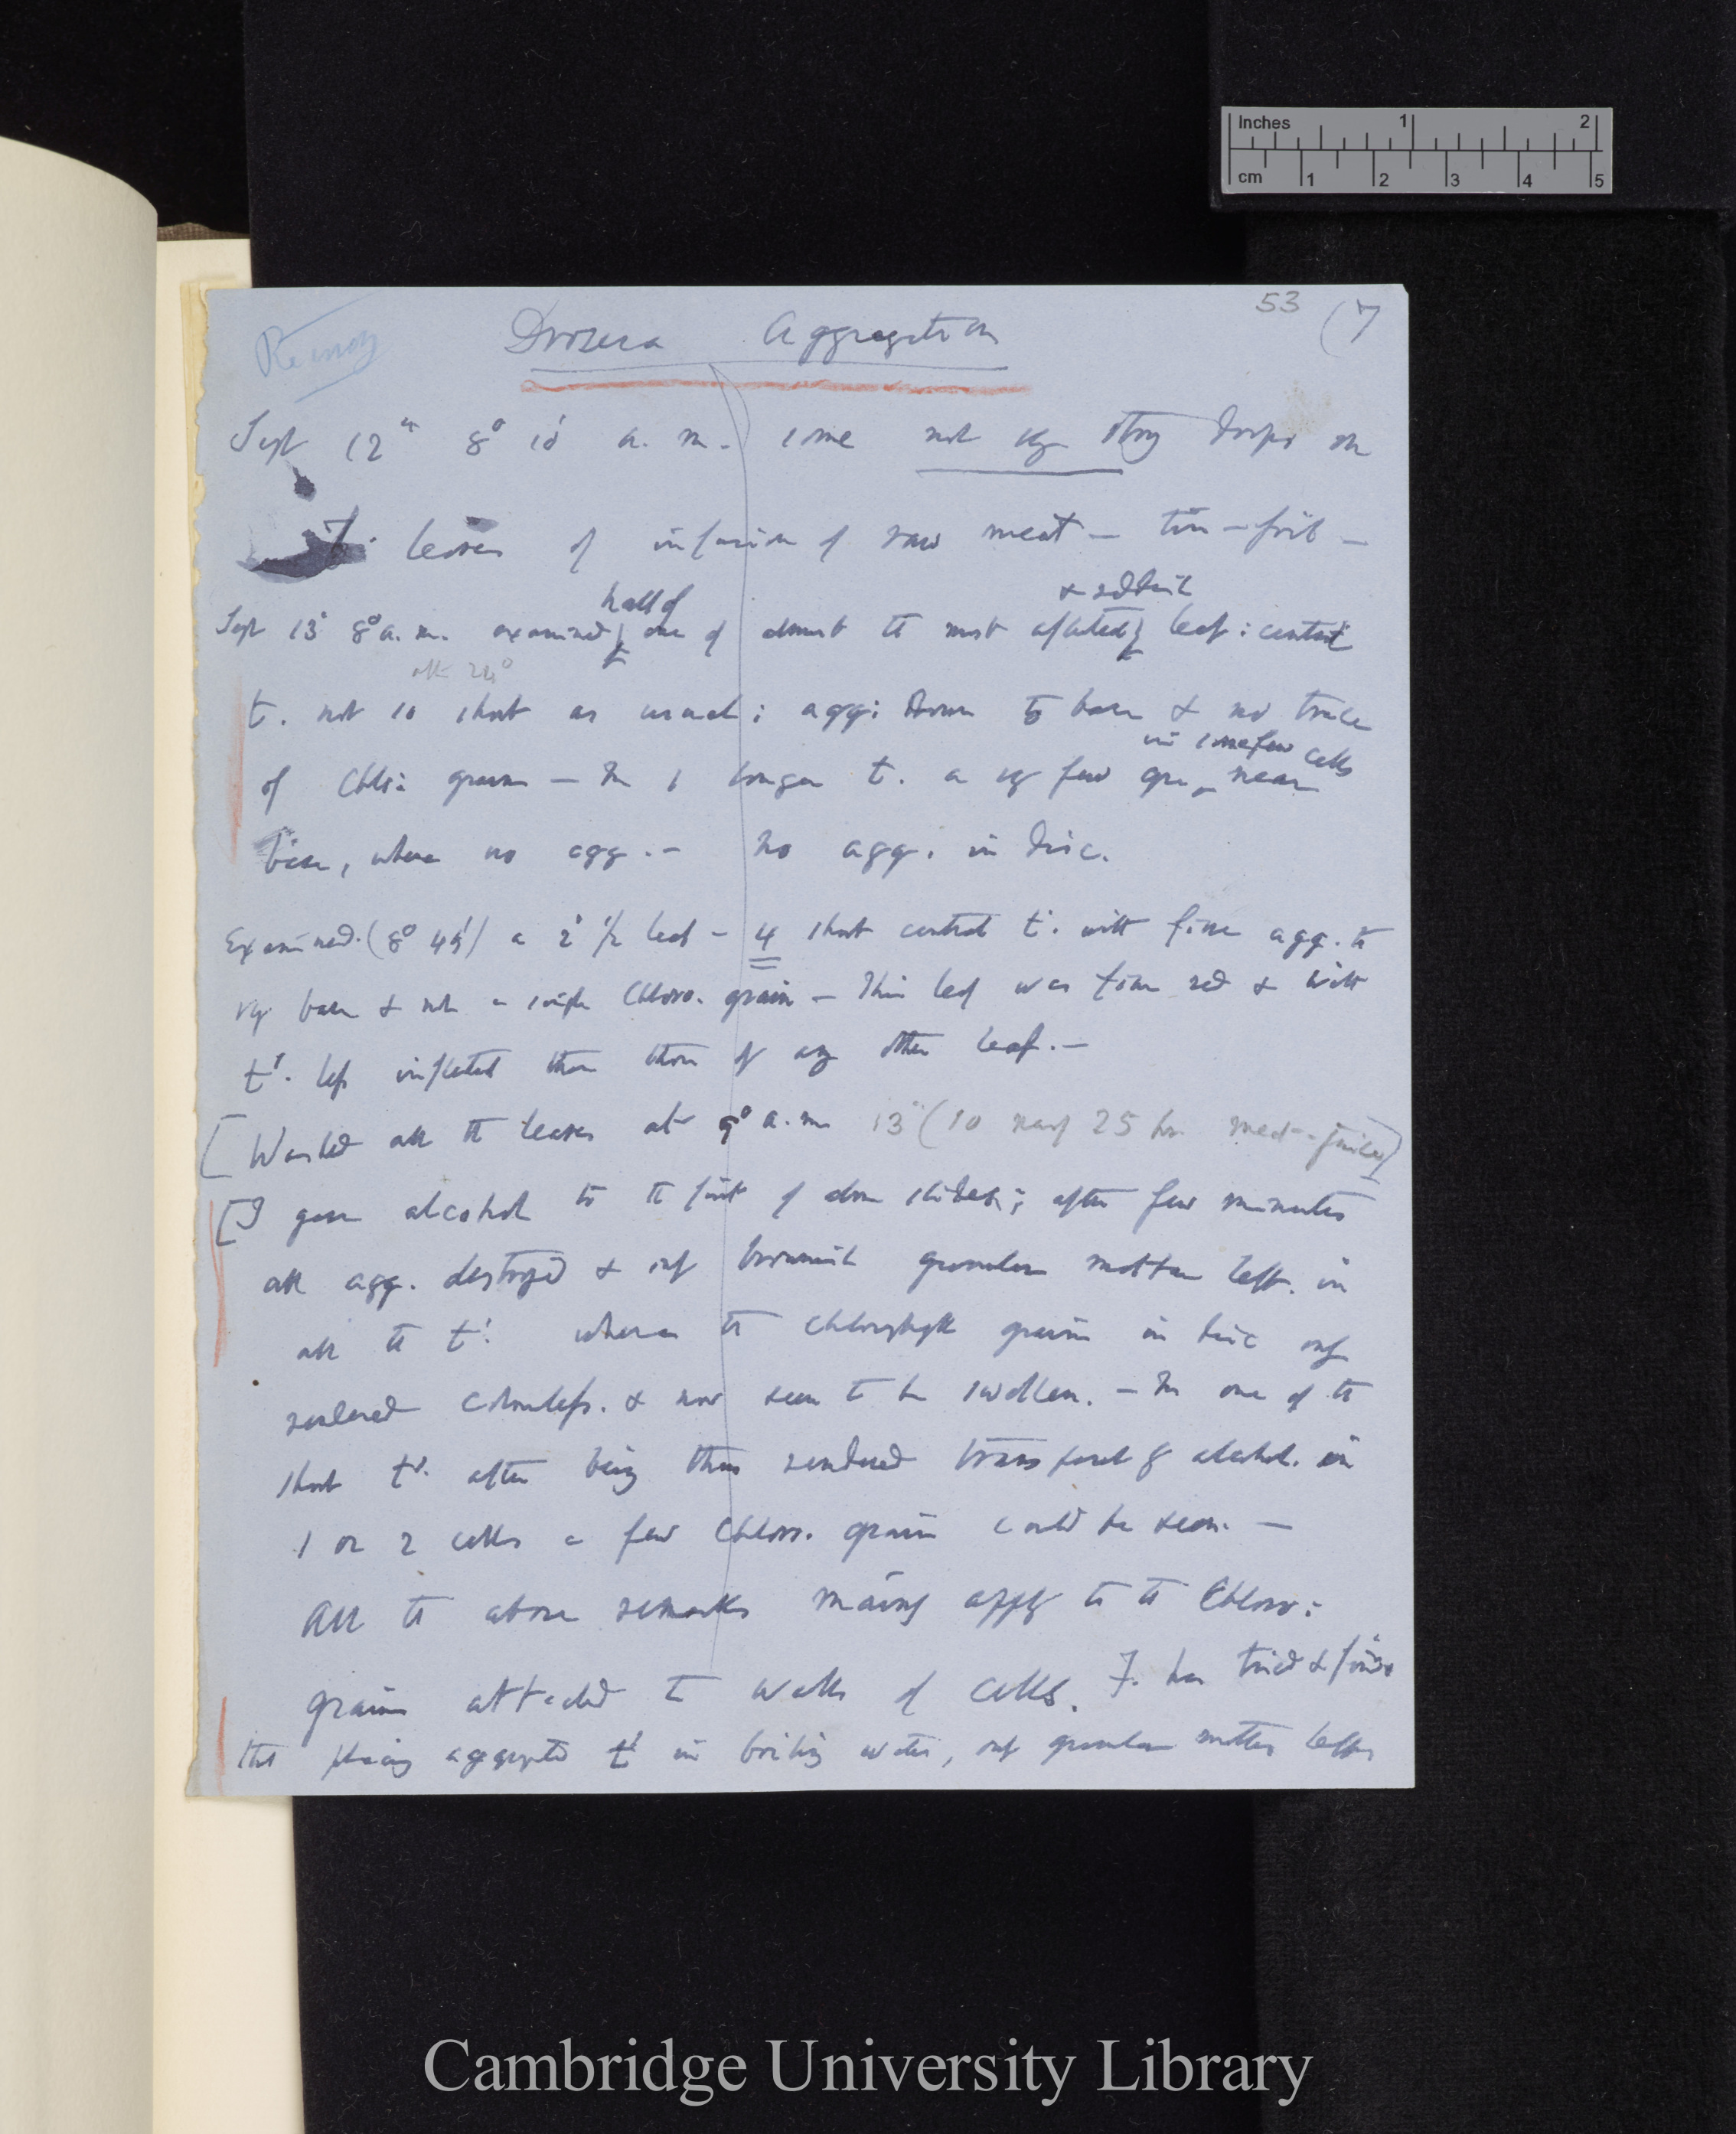 Inches 1 2
cm 1 2 3 4 5
53 (7
Drosera Aggregation
Sept 12th 8° 10' a. m. some not vy strong drops on
leaves of infusion of raw meat — tin-foil —
half of & reddish
Sept 13 8° a. m. examined one of almost the most inflected leaf: central
24°
t. not so short as usual; agg: down to base & no trace
in some few cells
of Chlo: grains — In 1 longer t. a vy few gr. near
base, where no agg. — No agg. in disc.
Examined (8° 45') a 2d 1/2 leaf — 4 short central t. with fine agg. to
vy base & not a single Chloro. grain — This leaf was fine red & with
ts. less inflected than those of any other leaf. —
[Washed all the leaves at 9° a. m. 13 (so nearly 25 hr. meat-juice)]
[I gave alcohol to the first of above slides; after few minutes
all agg. destroyed & only brownish granular matter left in
all the ts. whereas the chlorophyll grains in disc only
rendered colourless & now seem to be swollen. — In one of the
short ts. after being thus rendered transparent by alcohol in
1 or 2 cells a few Chloro. grains could be seen. —
All the above remarks mainly apply to the Chloro:
grains attached to walls of cells. F. has tried & finds
that placing aggregated ts in boiling water, only granular matter left
Cambridge University Library